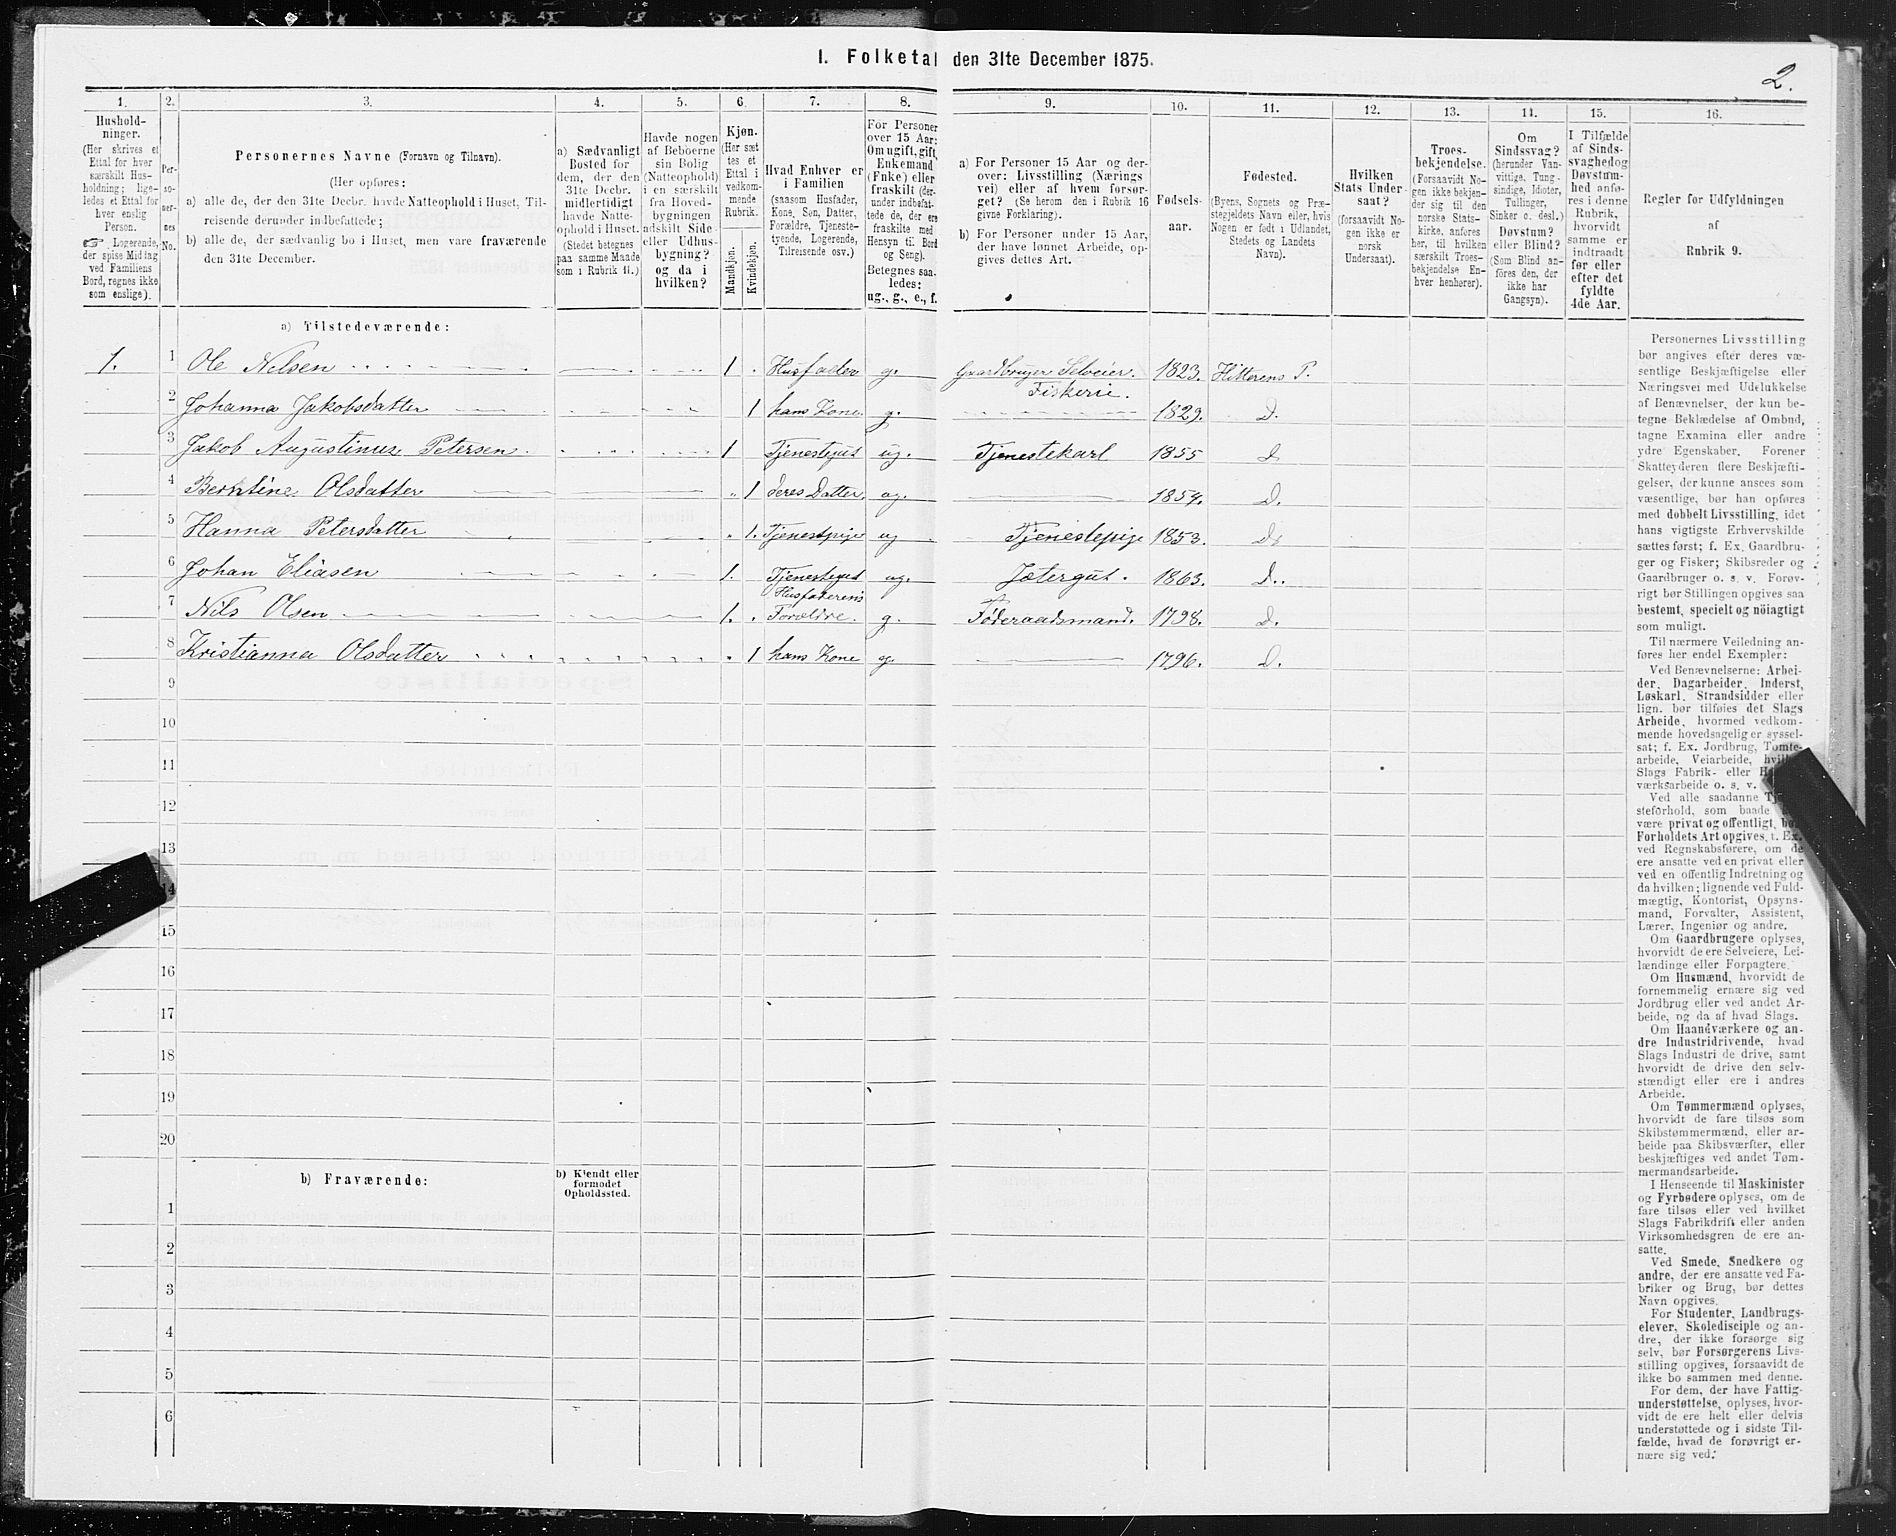 I. Folketal den 31te December 1875.
2.
1.
Hushold-
ninger.
(Her skrives et
Ettal for hver
særskilt Hus-
holdning; lige-
ledes et Ettal for
hver enslig
Person.
☞ Logerende,
der spise Middag
ved Familiens
Bord, regnes ikke
som enslige).
2.
Per-
so-
ner-
nes
No.
3.
Personernes Navne (Fornavn og Tilnavn).
(Her opføres:
a) alle de, der den 31te Decbr. havde Natteophold i Huset, Til-
reisende derunder indbefattede;
b) alle de, der sædvanlig bo i Huset, men vare fraværende
den 31te December.
4.
a) Sædvanligt
Bosted for
dem, der den
31te Decbr.
midlertidigt
havde Natte-
ophold i Huset.
(Stedet betegnes
paa samme Maade
som i Rubrik 11.)
5.
Havde nogen
af Beboerne
sin Bolig
(Natteophold)
i en særskilt
fra Hoved-
bygningen
adskilt Side-
eller Udhus-
bygning?
og da i
hvilken?
6.
Kjøn.
(Her sæt-
tes et
Ettal i
vedkom-
mende
Rubrik.
Mandkjøn.
Kvindekjøn.
7.
Hvad Enhver er
i Familien
(saasom Husfader,
Kone, Søn, Datter,
Forældre, Tjeneste-
tyende, Logerende,
Tilreisende osv.)
8.
For Personer
over 15 Aar;
Om ugift, gift,
Enkemand
(Enke) eller
fraskilt (der-
under indbefat-
tede de, der ere
fraskilte med
Hensyn til Bord
og Seng).
Betegnes saa-
ledes:
ug., g., e., f.
9.
a) For Personer 15 Aar og der-
over: Livsstilling (Nærings
vei) eller af hvem forsør-
get? (Se herom den i Rubrik 16
givne Forklaring).
b) For Personer under 15 Aar,
der have lønnet Arbeide, op-
gives dettes Art.
10.
Fødsels-
aar.
11.
Fødested.
(Byens, Sognets og Præ-
stegjeldets Navn eller, hvis
Nogen er født i Udlandet,
Stedets og Landets
Navn).
12.
Hvilken
Stats Under-
saat?
(forsaavidt No-
gen ikke er
norsk
Undersaat).
13.
Troes-
bekjendelse.
(Forsaavidt No-
gen ikke bekjen-
der sig til den
norske Stats-
kirke, anføres
her, til hvilken
særskilt Troes-
bekjendelse En-
hver henhører).
14.
Om
Sindssvag?
(herunder Van-
vittige, Tung-
sindige, Idioter,
Tullinger,
Sinker o. desl.)
Døvstum?
eller Blind?
(Som Blind an-
føres den, der
ikke har
Gangsyn).
15.
I Tilfælde
af Sinds-
svaghed og
Døvstum-
hed anfø-
res i denne
Rubrik,
hvorvidt
samme er
indtraadt
før eller
efter det
fyldte
4de Aar.
16.
Regler for Udfyldningen
af
Rubrik 9.
a) Tilstedeværende:
1. 1 Ole Nilsen 1 Husfader g. Gaardbruger Selveier. Fiskerie. 1823. Hitterens P.
2 Johanna Jakobsdatter 1 hans Kone. g. 1829. D.
3 Jakob Augustinus Petersen 1 Tjenestegut ug. Tjenestekarl 1855 D
4 Berntine Olsdatter 1 deres Datter, ug. 1854. D.
5 Hanna Petersdatter 1. Tjenestpige ug Tjenestepige 1853. D.
6 Johan Eliasen 1. Tjenestegut ug. Jætergut. 1863. D.
7 Nils Olsen 1. Husfaderens Forældre. g. Føderaadsmand. 1798. D.
8 Kristianna Olsdatter 1 hans Kone g. 1796. D.
9
10
11
12
13
14
15
16
17
18
19
20
b) Fraværende:
b) Kjendt eller
formodet
Opholdssted.
1
2
3
4
5
6
Personernes Livsstilling
bør angives efter deres væ-
sentlige Beskjæftigelse eller
Næringsvei med Udelukkelse
af Benævnelser, der kun be-
tegne Beklædelse af Ombud,
tagne Examina eller andre
ydre Egenskaber. Forener
Skatteyderen flere Beskjæfti-
gelser, der kunne ansees som
væsentlige, bør han opføres
med dobbelt Livsstilling, idet
hans vigtigste Erhvervskilde
sættes først; f. Ex. Gaardbru-
ger og Fisker; Skibsreder og
Gaardbruger o. s. v. Forøv-
rigt bør Stillingen opgives saa
bestemt, specielt og nöiagtigt
som muligt.
Til nærmere Veiledning an-
føres her endel Exempler:
Ved Benævnelserne: Arbei-
der, Dagarbeider, Inderst,
Løskarl, Strandsidder eller
lign. bør tilføies det Slags
Arbeide, hvormed vedkom-
mende hovedsagelig er syssel-
sat; f. Ex. Jordbrug, Tomte-
arbeide, Veiarbeide,
Slags Fabrik- eller
værksarbeide o. s. v.
Ved alle saadanne
steforhold, som baade
være privat og offentligt,
Forholdets Art opgives, t. Ex.
ved Regnskabsførere, om de
ere ansatte ved en privat eller
ved en offentlig Indretning og
da hvilken; lignende ved Fuld-
mægtig, Kontorist, Opsyns-
mand, Forvalter, Assistent,
Lærer, Ingeniør og andre.
Om Gaardbrugere oplyses,
hvorvidt de ere Selveiere, Lei-
lændinge eller Forpagtere.
Om Husmænd, hvorvidt de
fornemmelig ernære sig ved
Jordbrug eller ved andet Ar-
beide, og da af hvad Slags.
Om Haandværkere og an-
dre Industridrivende, hvad
Slags Industri de drive, samt
hvorvidt de drive den selv-
stændigt eller ere i andres
Arbeide.
Om Tømmermænd oplyses,
hvorvidt de fare tilsøs som
Skibstømmermænd, eller ar-
beide paa Skibsværfter, eller
beskjæftiges ved andet Tøm-
mermandsarbeide.
I Henseende til Maskinister
og Fyrbødere oplyses, om de
fare tilsøs eller ved hvilket
Slags Fabrikdrift eller anden
Virksomhedsgren de ere an-
satte.
Ved Smede, Snedkere og
andre, der ere ansatte ved Fa-
briker og Brug, bør dettes
Navn opgives.
For Studenter, Landbrugs-
elever, Skoledisciple og an-
dre, der ikke forsørge sig
selv, bør Forsørgerens Livs-
stilling opgives, forsaavidt de
ikke bo sammen med denne.
For dem, der have Fattig-
understøttelse, oplyses, hvor-
vidt de ere helt eller delvis
understøttede og i sidste Til-
fælde, hvad de forøvrigt er-
nære sig ved.